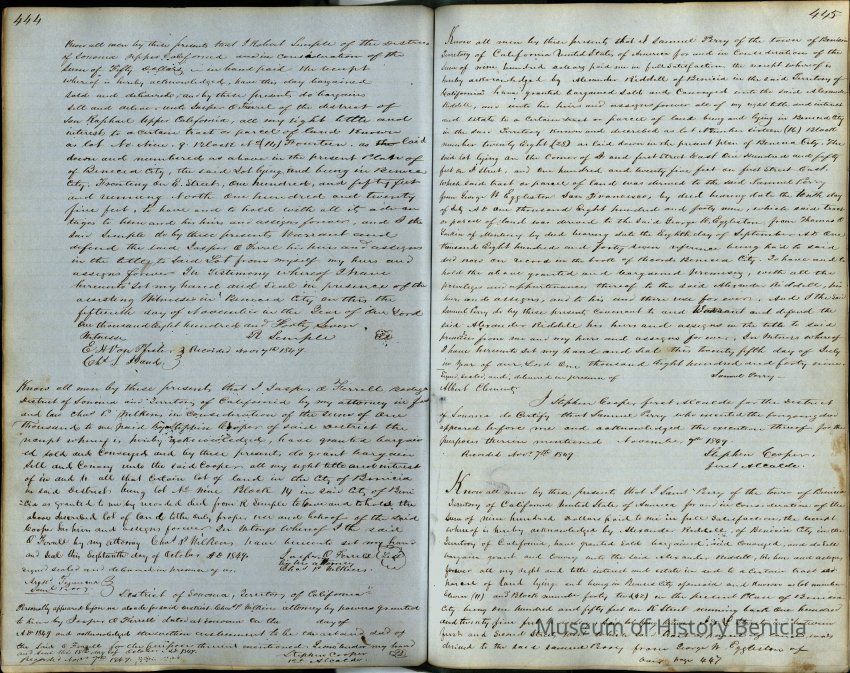 444
Know all men by these presents that I Robert Semple of the District
of Sonoma Upper California and in consideration of the
Sum of Fifty dollars, in hand paid the receipt
whereof is hereby acknowledged have this day bargained
Sold and delivered, and by these presents do bargain
Sell and deliver unto Jasper O Farrel of the district of
San Raphael Upper California, all my right title and
interest to a certain tract or parcel of land Known
as lot No Nine 9 Block No (14) Fourteen as laid
down and numbered as above in the present Plan of
of Benecia City, the said Lot lying and being in Benecia
City, Fronting on K Street, One hundred, and fifty feet
and running North One hundred and twenty
five feet, to have and to hold with all its advan
tages to him and his heirs and assigns forever, and I the
said Semple do by these presents Warrant and
defend the said Jasper O Farrel his heirs and assigns
in the title to Said Lot from myself my heirs and
assigns forever In Testimony whereof I have
hereunto Set my hand and Seal in presence of the
assisting Witnesses in Benecia City on this the
fifteenth day of November in the Year of Our Lord
One thousand Eight hundred and Forty Seven
Witness R Semple
E. H. Von Pfister Recorded Nov 7th 1849
Know all men by these presents that I Jasper O Farrell
District of Sonoma and Territory of California by my attorney in fact
and law Chas P Wilkins, in Consideration of the Sum of One
thousand to me paid by Stephen Cooper of said District the
receipt whereof is hereby acknowledged, have granted bargain
ed sold and Conveyed and by these presents, do grant bargain
Sell and Convey unto the said Cooper all my right title and interest
of in and to all that Certain lot of land in the City of Benicia
in said District being lot No Nine Block 14 in Said City of Beni
cia as granted to me by recorded deed from R Semple to have and to hold the
above described lot of land to the only proper use and behoof of the said
Cooper his heirs and assigns forever In Witness Whereof I the said
O Farrell by my attorney Chas P Wilkins have hereunto set my hand
and Seal this September day of October AD 1849.
signed sealed and delivered in presence of us Jasper O Farrell
by his attorney
Chas P Wilkins
District of Sonoma, Territory of California
Personally appeared before me alcalde for said district Chas P Wilkins attorney by powers granted
to him by Jasper O Farrell dated at Sonoma on the day of
AD 1849 and acknowledged the
the said O Farrell for the purposes therein mentioned. Given under my hand
and Seal this 18th day of October AD 1849.
Recorded Novr 7th 1849. Stephen Cooper
1st Alcalde
445
Know all men by these presents that I Samuel Perry of the town of Benicia
Territory of California United States of America for and in Consideration of the
sum of nine hundred dollars paid me in full Satisfaction the receipt whereof is
hereby acknowledged by Alexander Riddell of Benicia in the said Territory of
California have granted bargained Sold and Conveyed unto the said Alexander
Riddell, and unto his heirs and assigns forever all of my right title and interest
and estate to a Certain tract or parcel of land being and lying in Benicia City
in the said Territory Known and described as lot Number sixteen (16) Block
number twenty Eight (28) as laid down in the present plan of Benicia City. The
said lot lying on the Corner of I and first Street East One Hundred and fifty
feet on I Street, and One hundred and twenty five feet on first Street East.
Which said tract or parcel of land was deeded to the said Samuel Perry
from George W. Eggleston San Francisco, by deed bearing date the tenth day
of July AD One thousand Eight hundred and forty nine, which said tract
or parcel of land was deeded to the said George W. Eggleston from Thomas O
Larkin of Monterey by deed bearing date the Eighth day of September AD One
thousand Eight hundred and Forty Seven reference being had to said
deed now on record in the book of Records Benicia City. To have and to
hold the above granted and bargained Premises, with all the
privileges and appurtenances thereof to the said Alexander Riddell, his
heirs and assigns, and to his and their use for ever. And I the said
Samuel Perry do by these presents Covenant to and Warrant and defend the
said Alexander Riddell his heirs and assigns in the title to said
premises from me and my heirs and assigns for ever. In Witness whereof
I have hereunto set my hand and Seal this twenty fifth day of July
in Year of our Lord One thousand Eight hundred and forty nine
Signed, sealed, and, delivered in presence of Samuel Perry
I Stephen Cooper, first Alcalde for the District
of Sonoma do Certify that Samuel Perry who executed the foregoing deed
appeared before me and acknowledged the execution thereof for the
purposes therein mentioned November 7th 1849
Recorded Novr 7th 1849 Stephen Cooper,
first Alcalde.
Know all men by these presents that I Saml Perry of the town of Benicia
Territory of California United States of America for and in Consideration of the
Sum of Nine hundred dollars paid to me in full Satisfaction, the receipt
whereof is hereby acknowledged by Alexander Riddell, of Benicia City in the
Territory of California, have granted Sold bargained and Conveyed and do sell
bargain grant and Convey unto the said Alexander Riddell, his heirs and assigns
forever all my right and title interest and estate in and to a Certain tract or
parcel of land lying and being in Benicia City aforesaid and Known as lot number
Eleven (11) and Block number forty two (42) in the present Plan of Benicia
City being One hundred and fifty feet on K Street running back One hundred
and twenty five
first and Second Streets
deeded to the said Samuel Perry from George W Eggleston of
over page 447
Museum of History Benicia